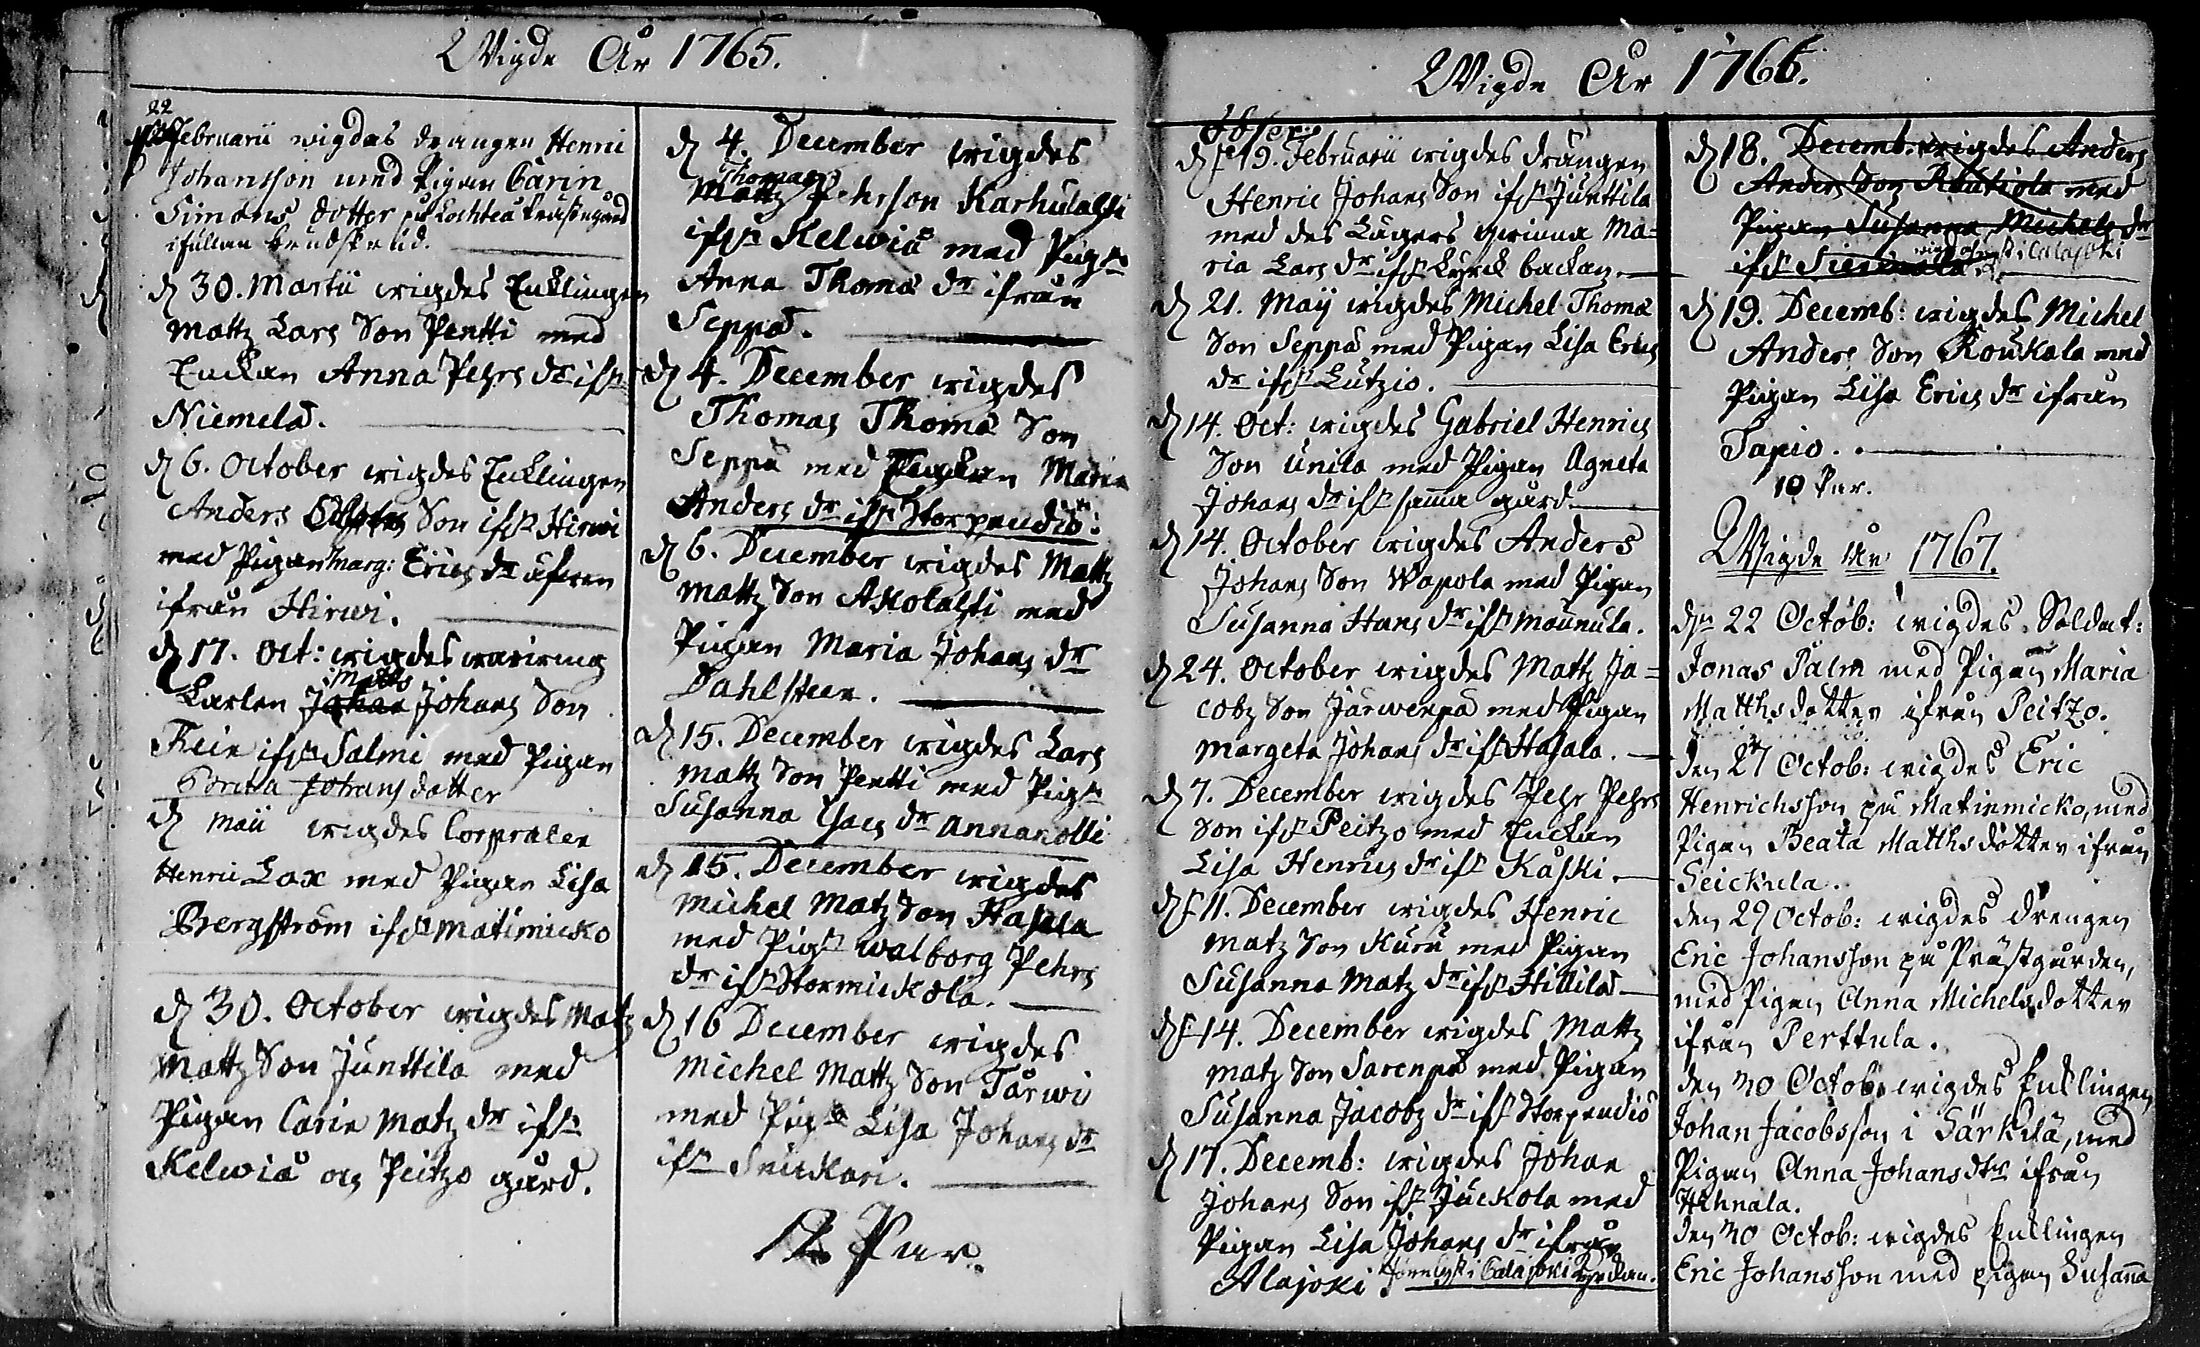 Wigde År 1765.
22
Februarii wigdes drängen Henric
Johansson med Pigan Carin
Simons dotter på Lochteå
i full brudskrud.
d 30. Martii wigdes Encklingen
Mattz Lars Son Pentti med
Enckan Anna Pehrs dr ifrn
Niemelä.
d 6. October wigdes Encklingen
Anders Son ifrn Hirwi
med Pigan Marg: Erics dr äfwen
ifrån Hirwi.
d 17. Oct: wigdes
Matts
Karlen Johan Johans Son
ifrn Salmi med Pigan
Johans dotter
d Maii wigdes Corporalen
Henric Lax med Pigan Lisa
Bergström ifrn Matimicko
d 30. October wigdes Matz
Mattz Son Junttila med
Pigan Carin Matz dr ifrn
Kelwiå og Peitzo gård.
d 4. December wigdes
Thomas
Mattz Pehrson Karhulahti
ifrn Kelwiå med Pign
Anna Thomæ dr ifrån
Seppä.
d 4. December wigdes
Thomas Thomæ Son
Seppä med Enckan Maria
Anders dr ifrn Storpendiö.
d 6. December wigdes Mattz
Mattz Son Akolahti med
Pigan Maria Johans dr
Dahlsteen.
d 15. December wigdes Lars
Mattz Son Pentti med Pign
Susanna Isacs dr Annanolli
d 15. December wigdes
Michel Matz Son Hasala
med Pign Walborg Pehrs
dr ifrn Stormickola.
d 16 December wigdes
Michel Mattz Son Tarwis
med Pign Lisa Johans dr
ifrn Snickari.
12 Par.
Wigde År 1766.
d 19. Februarii wigdes drängen
Henric Johans Son ifrn Junttila
med des Lägers qwinna Ma=
ria Lars dr ifrn Kyrck backan.
d 21. Maij wigdes Michel Thomæ
Son Seppä med Pigan Lisa Erics
dr ifrn Lutzio.
d 14. Oct: wigdes Gabriel Henrics
Son Unila med Pigan Agneta
Johans dr ifrn samma gård.
d 14. October wigdes Anders
Johans Son Wapola med Pigan
Susanna Hans dr ifrn Maunula.
d 24. October wigdes Mattz Ja=
cobz Son Järwenpä med Pigan
Margeta Johans dr ifrn Hasala.
d 7. December wigdes Pehr Pehrs
Son ifrn Peitzo med Enckan
Lisa Henrics dr ifrn Kåski.
d 11. December wigdes Henric
Matz Son Kuru med Pigan
Susanna Matz dr ifrn Hillilä
d 14. December wigdes Mattz
Matz Son Sarenpä med Pigan
Susanna Jacobz dr ifrn Storpendiö
d 17. Decemb: wigdes Johan
Johans Son ifrn Juckola med
Pigan Lisa Johans dr ifrån
Alajoki i Calajoki Kyrckan.
d 18. Decemb. wigdes Anders
Anders Son Rautiola med
Pigan Susanna Michels dr
i Calajoki
ifrn
d 19. Decemb: wigdes Michel
Anders Son Roukala med
Pigan Lisa Erics dr ifrån
Tapio.
10 Par.
Wigde År 1767.
den 22 Octob: wigdes Soldat:
Jonas Palm med Pigan Maria
Matthsdotter ifrån Peitzo.
den 27 Octob: wigdes Eric
Henrichsson på Matinmicko, med
Pigan Beata Matthsdotter ifrån
Seickula.
den 29 Octob: wigdes drengen
Eric Johansson på Prästgården,
med Pigan Anna Michelsdotter
ifrån Perttula.
den 30 Octob: wigdes Encklingen
Johan Jacobsson i Särkilä, med
Pigan Anna Johansdtr ifrån
Hihnala.
den 30 Octob: wigdes Encklingen
Eric Johansson med pigan Susanna